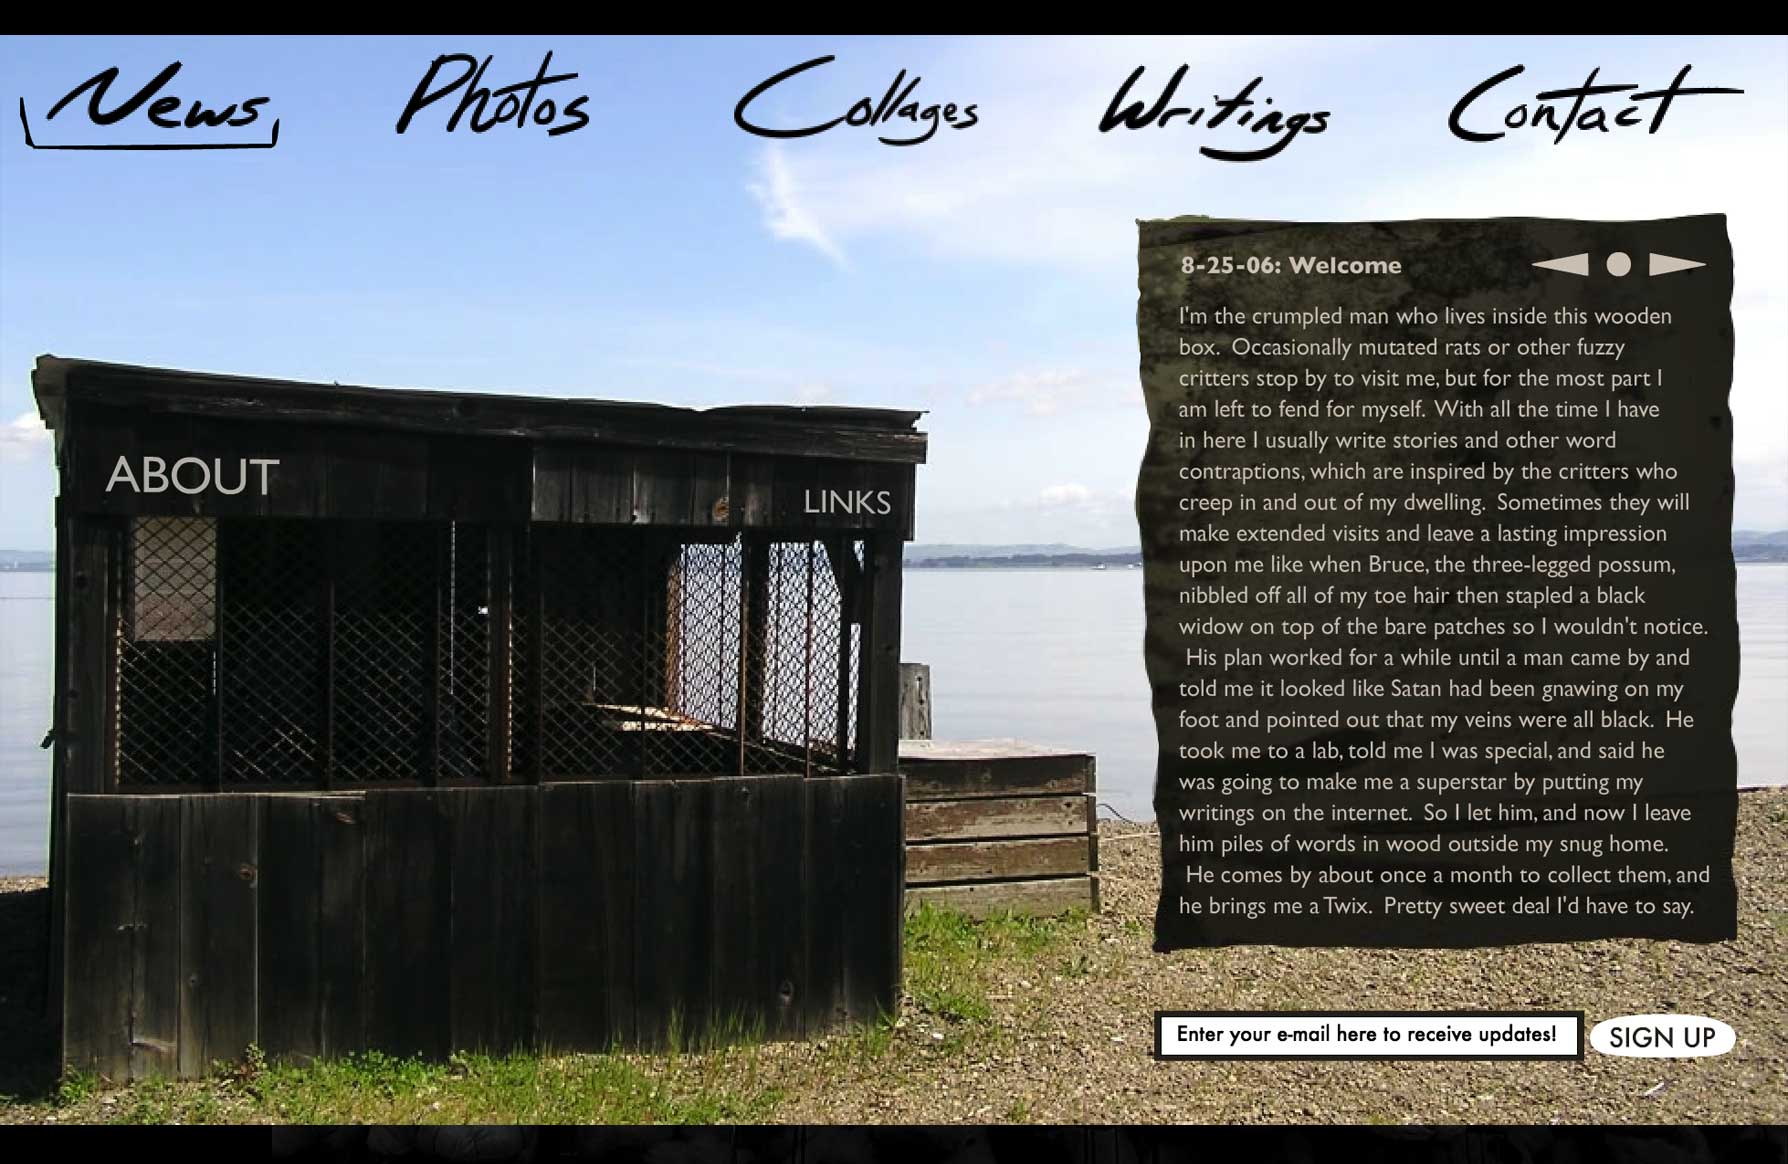 News Photos Collages Writings Contact
8-25-06: Welcome
I'm the crumpled man who lives inside this wooden
box.  Occasionally mutated rats or other fuzzy
critters stop by to visit me, but for the most part I
am left to fend for myself. With all the time I have
in here I usually write stories and other word
contraptions, which are inspired by the critters who
creep in and out of my dwelling.  Sometimes they will
make extended visits and leave a lasting impression
upon me like when Bruce, the three-legged possum,
nibbled off all of my toe hair then stapled a black
widow on top of the bare patches so I wouldn't notice.
His plan worked for a while until a man came by and
told me it looked like Satan had been gnawing on my
foot and pointed out that my veins were all black.  He
took me to a lab, told me I was special, and said he
was going to make me a superstar by putting my
writings on the internet.  So I let him, and now I leave
him piles of words in wood outside my snug home.
He comes by about once a month to collect them, and
he brings me a Twix.  Pretty sweet deal I'd have to say.
ABOUT
LINKS
Enter your e-mail here to receive updates!
SIGN UP